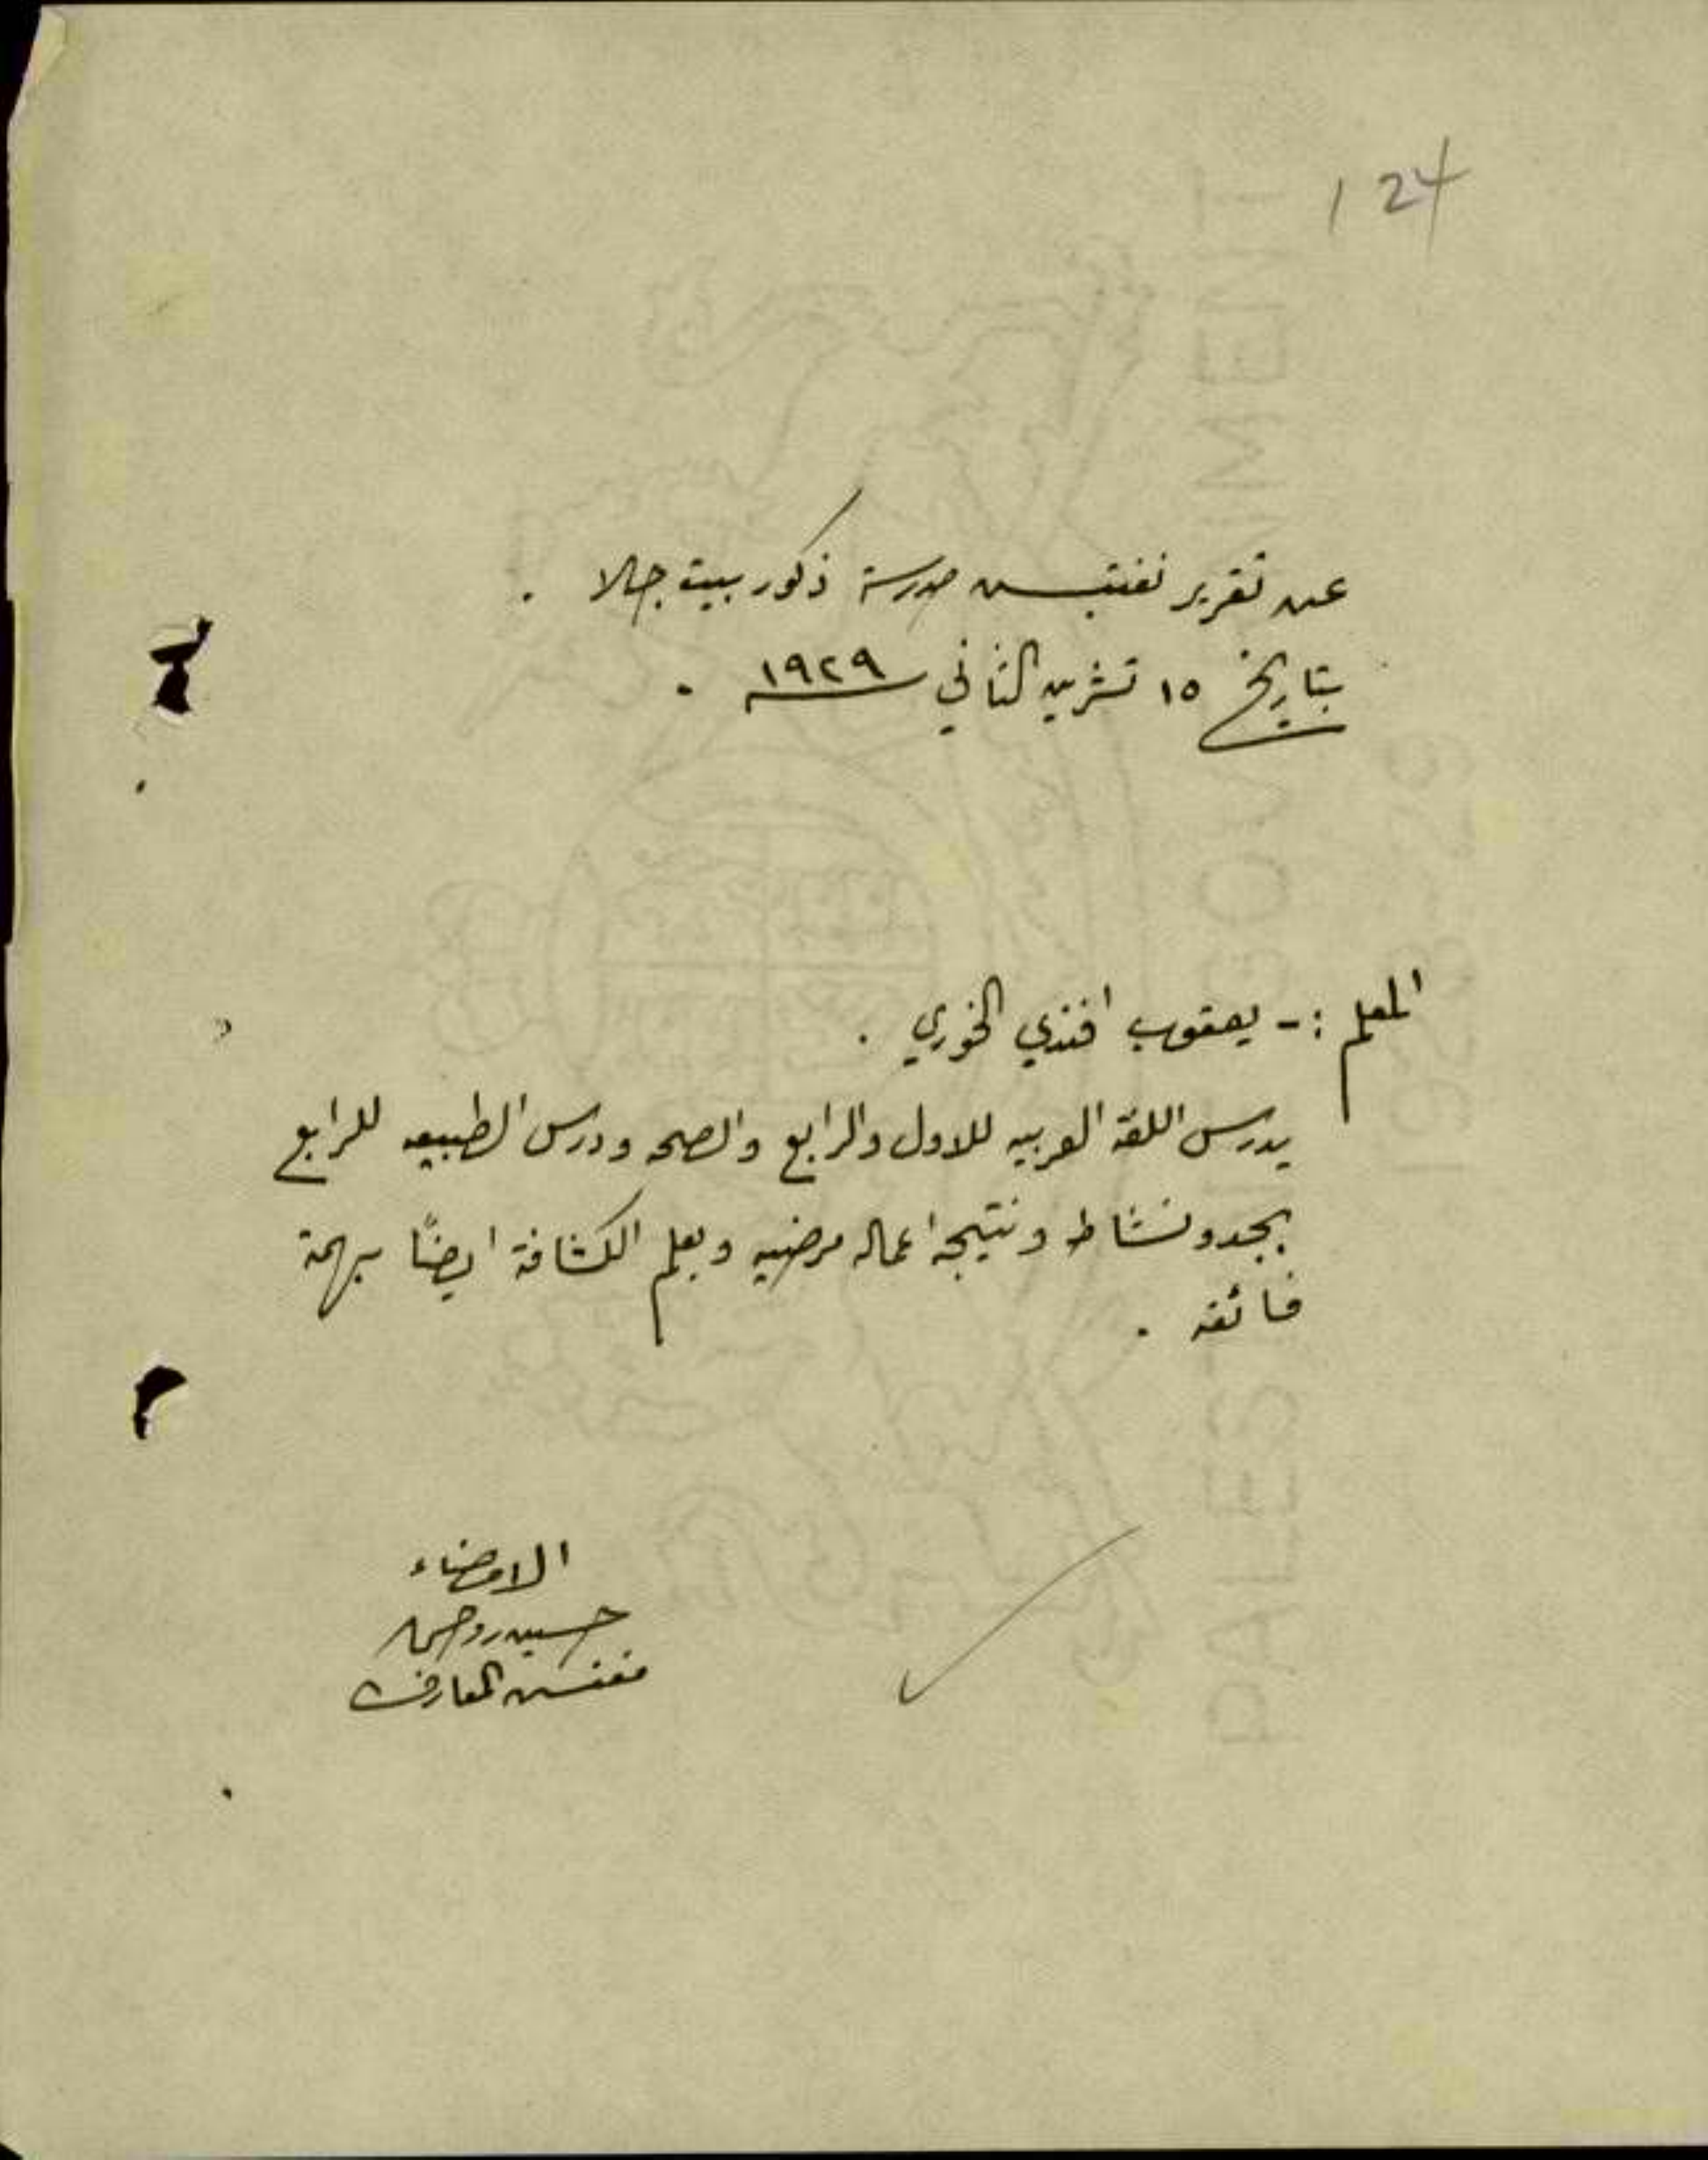 124
عن تقرير تفتيش مدرسة ذكور بيت جالا .
بتاريخ ١٥ تشرين الثاني سنة ١٩٢٩ .
المعلم :- يعقوب افندي الخوري .
يدرس اللغة العربيه للاول والرابع والصحه ودرس الطبيعه للرابع
بجد ونشاط ونتيجة اعماله مرضيه ويعلم الكشافة ايضًا بهمة
فائقه .
الامضاء
حسين روحي
مفتش المعارف
PALESTINE GOVERNMENT